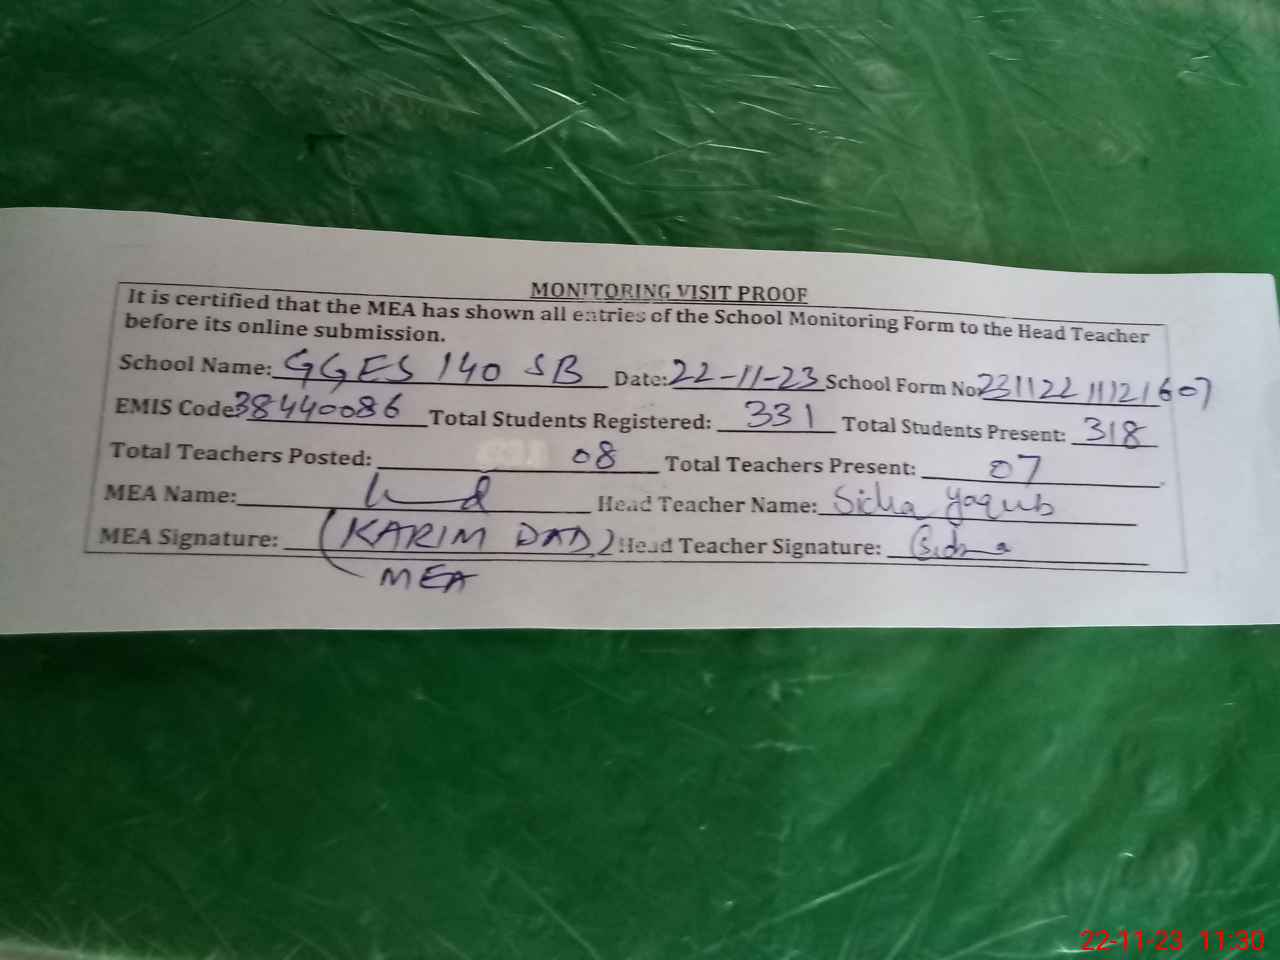 MONITORING VISIT PROOF
It is certified that the MEA has shown all entries of the School Monitoring Form to the Head Teacher
before its online submission.
School Name: GGES 140 SB Date: 22-11-23 School Form No. 231122111121607
EMIS Code: 38440086 Total Students Registered: 331 Total Students Present: 318
Total Teachers Posted: 08 Total Teachers Present: 07
MEA Name: Head Teacher Name: Sidra Yaqub
MEA Signature: (KARIM DAD) Head Teacher Signature: Sidra
MEA
22-11-23 11:30